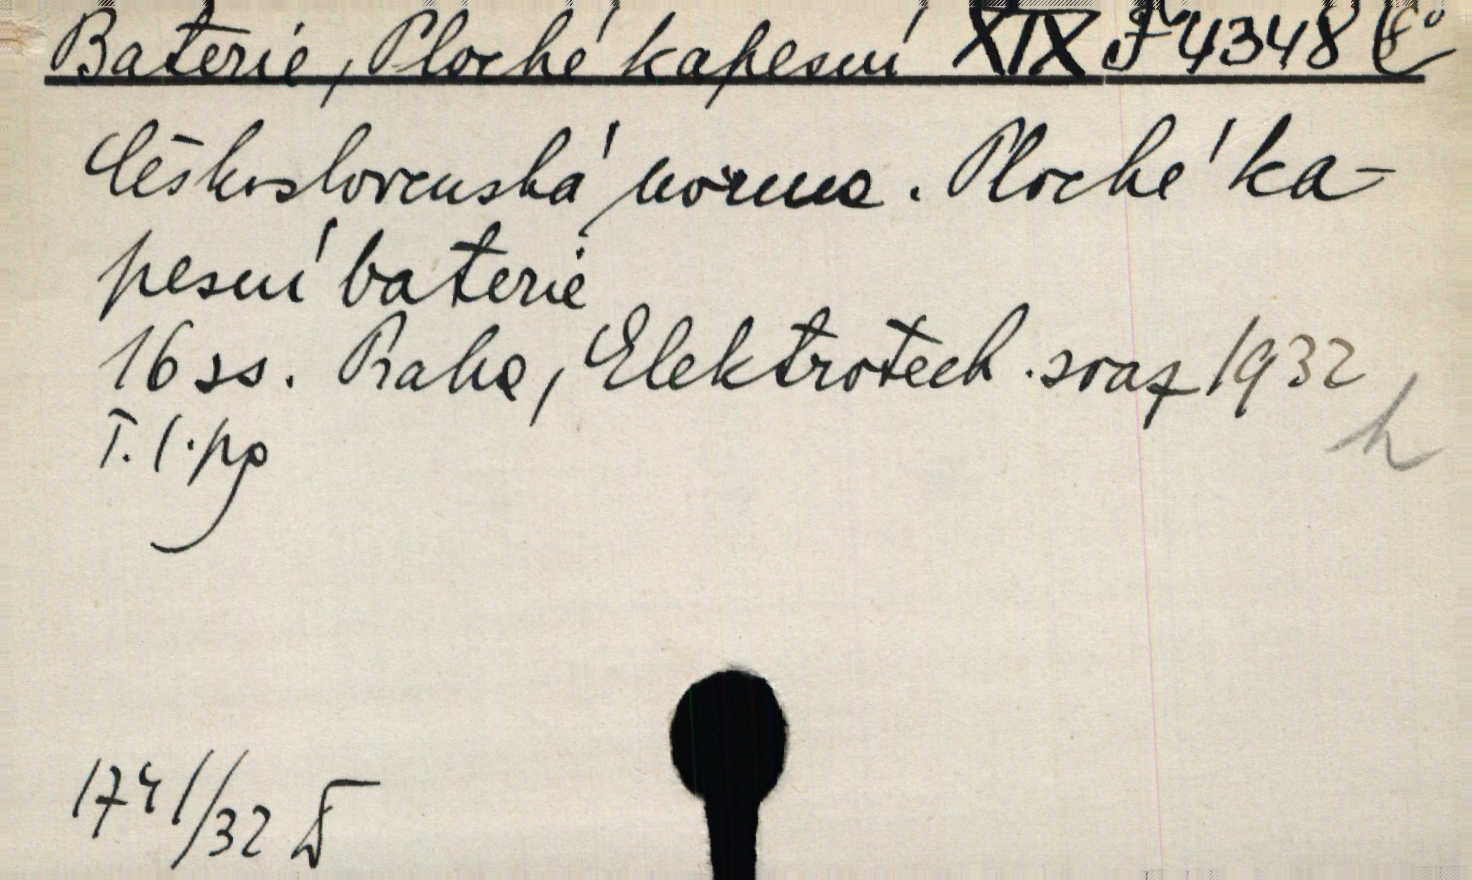 Baterie, Ploché kapesní XIX F 4348
Československá norma. Ploché ka-
pesní baterie
16 ss. Praha, Elektrotech. svaz 1932
T. l. pp
h
1741/32